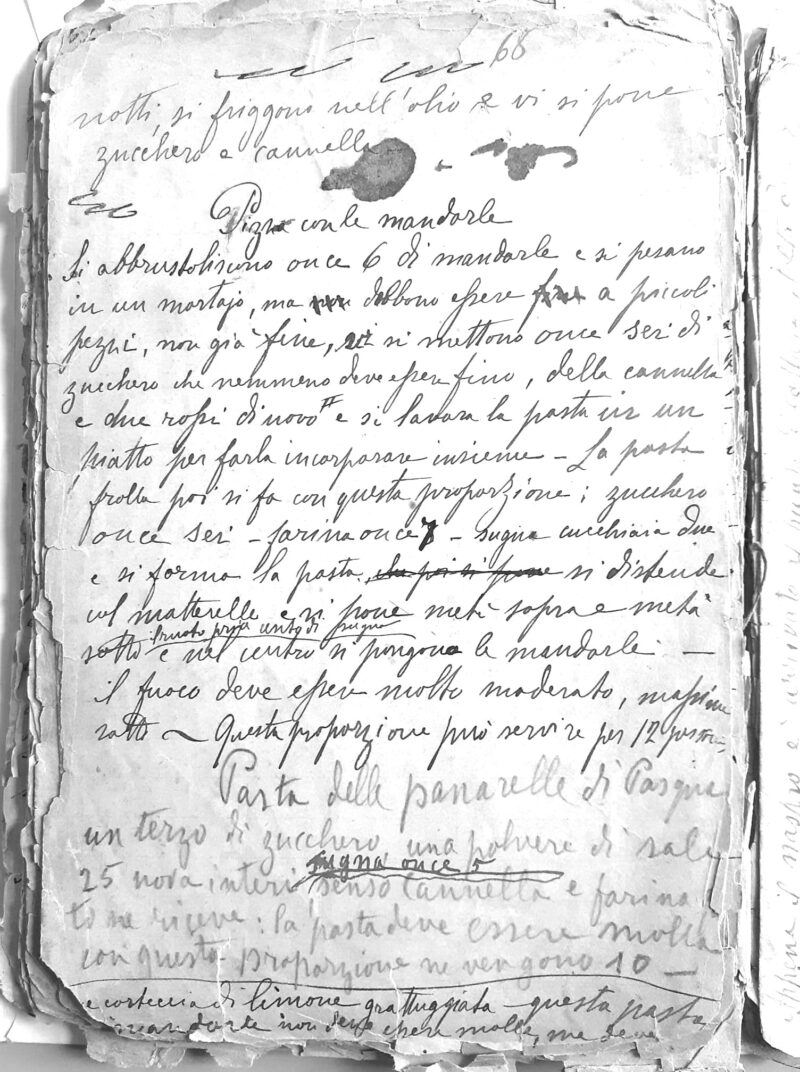 68
notti, si friggono nell'olio e vi si pone
zucchero e cannella
Pizza con le mandorle
Si abbrustoliscono once 6 di mandorle e si pesano
in un mortajo, ma debbono essere a piccoli
pezzi, non già fine, si mettono once sei di
zucchero che nemmeno deve esser fino, della cannella
e due rossi di novo e si lavora la pasta in un
piatto per farla incorporare insieme – La pasta
frolla poi si fa con questa proporzione; zucchero
once sei – farina once 7 – sugna cucchiaia due
e si forma la pasta, che poi si pone si distende
col matterelle e si pone metà sopra e metà
unto di sugna
sotto e nel centro si pongono le mandorle –
il fuoco deve essere molto moderato, massime
sotto – Questa proporzione può servire per 12 persone
Pasta delle panarelle di Pasqua
un terzo di zucchero una polvere di sale
sugna once 5
25 nova interi senso cannella e farina
to ne riceve: la pasta deve essere molla
con questa proporzione ne vengono 10 –
e corteccia di limone grattuggiata – questa pasta
mandorle non deve essere molle, ma deve